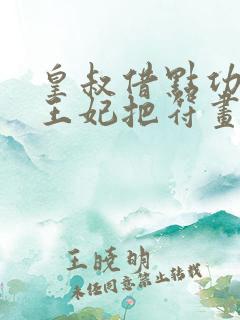 皇叔借點功
王妃把符畫
王曉明
未经同意禁止转载